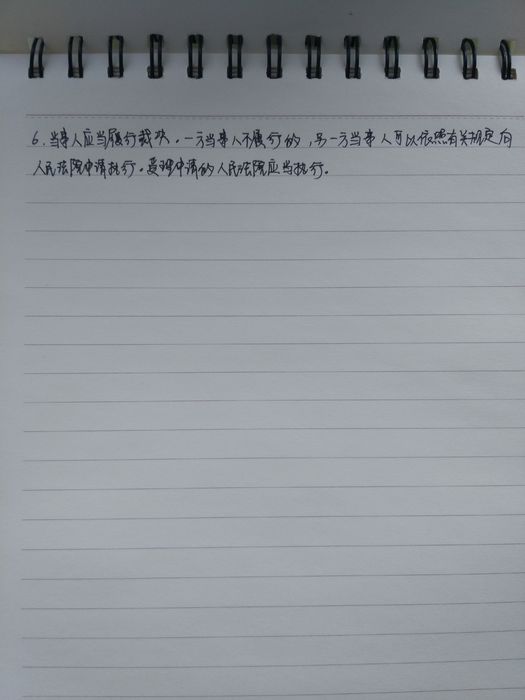 6.当事人应当履行裁决。一方当事人不履行的，另一方当事人可以依照有关规定向
人民法院申请执行。受理申请的人民法院应当执行。